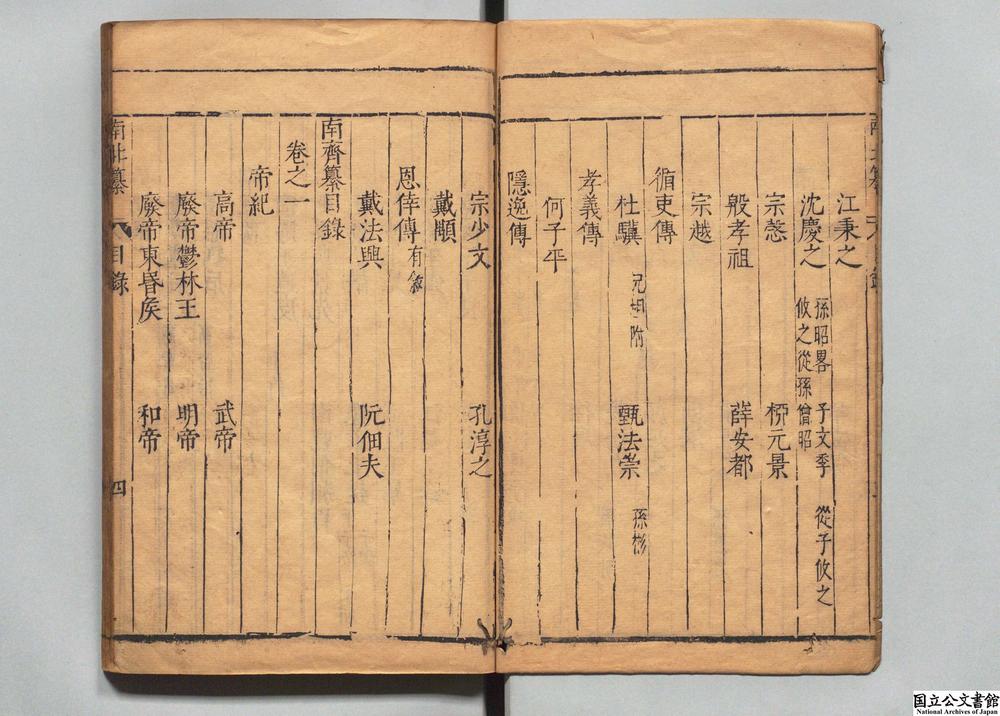 江秉之
沈慶之 孫昭畧 子文季 從子攸之 攸之從孫曾昭
宗慤 栁元景
殷孝祖 薛安都
宗越
循吏傳
杜驥 兄坦附 甄法崇 孫彬
孝義傳
何子平
隱逸傳
宗少文 孔淳之
戴顒
恩倖傳 有叙
戴法興 阮佃夫
南齊纂目錄
卷之一
帝紀
高帝 武帝
廢帝鬱林王 明帝
廢帝東昬矦 和帝
南北纂 目錄 四
国立公文書館
National Archives of Japan